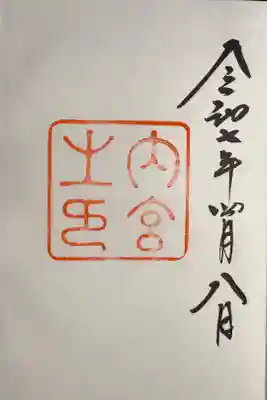 令和七年四月八日
内宮
之印